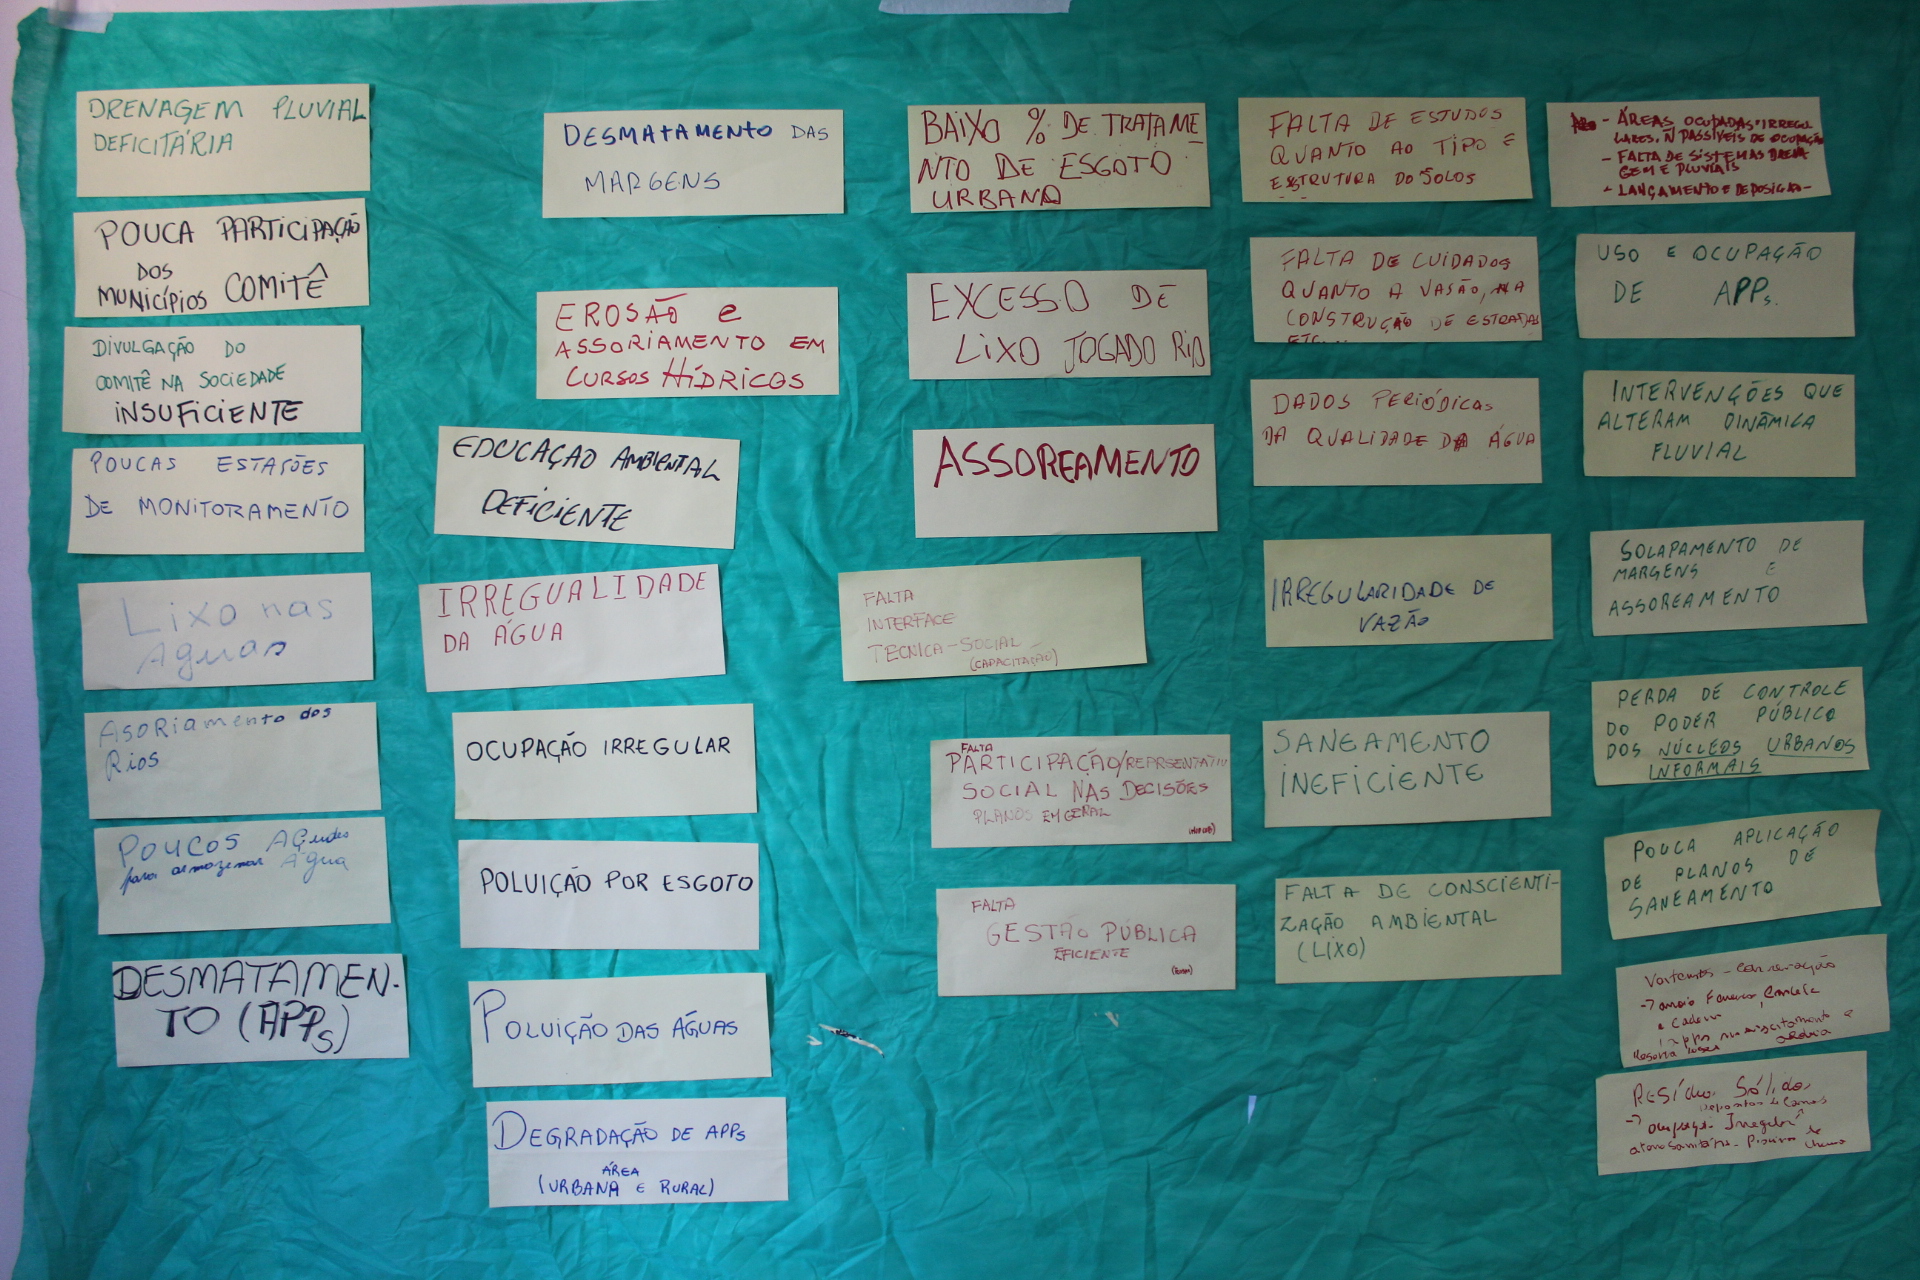 DRENAGEM PLUVIAL
DEFICITÁRIA
POUCA PARTICIPAÇÃO
DOS
MUNICÍPIOS COMITÊ
DIVULGAÇÃO DO
COMITÊ NA SOCIEDADE
INSUFICIENTE
POUCAS ESTAÇÕES
DE MONITORAMENTO
Lixo nas
Aguas
Asoriamento dos
Rios
Poucos Açudes
para armazenar Água
DESMATAMEN-
TO (APPs)
DESMATAMENTO DAS
MARGENS
EROSÃO e
ASSORIAMENTO EM
CURSOS HÍDRICOS
EDUCAÇÃO AMBIENTAL
DEFICIENTE
IRREGUALIDADE
DA ÁGUA
OCUPAÇÃO IRREGULAR
POLUIÇÃO POR ESGOTO
POLUIÇÃO DAS ÁGUAS
DEGRADAÇÃO DE APPs
ÁREA
(URBANA E RURAL)
BAIXO % DE TRATAME
NTO DE ESGOTO
URBANO
EXCESSO DE
LIXO JOGADO RIO
ASSOREAMENTO
FALTA
INTERFACE
TECNICA-SOCIAL
(CAPACITAÇÃO)
FALTA
PARTICIPAÇÃO/REPRSENTATIV
SOCIAL NAS DECISÕES
PLANOS EM GERAL
FALTA
GESTÃO PÚBLICA
EFICIENTE
FALTA DE ESTUDOS
QUANTO AO TIPO E
ESTRUTURA DO SOLOS
FALTA DE CUIDADOS
QUANTO A VASÃO, NA
CONSTRUÇÃO DE ESTRADAS
ETC...
DADOS PERIÓDICAS
DA QUALIDADE DA ÁGUA
IRREGULARIDADE DE
VAZÃO
SANEAMENTO
INEFICIENTE
FALTA DE CONSCIENTI-
ZAÇÃO AMBIENTAL
(LIXO)
- ÁREAS OCUPADAS IRREGU
LARES, Ñ PASSÍVEIS DE OCUPAÇÃO
- FALTA DE SISTEMAS DRENA
GEM E PLUVIAIS
- LANÇAMENTO E DEPOSIÇÃO-
USO E OCUPAÇÃO
DE APPs.
INTERVENÇÕES QUE
ALTERAM DINÂMICA
FLUVIAL
SOLAPAMENTO DE
MARGENS E
ASSOREAMENTO
PERDA DE CONTROLE
DO PODER PÚBLICO
DOS NÚCLEOS URBANOS
INFORMAIS
POUCA APLICAÇÃO
DE PLANOS DE
SANEAMENTO
Resíduo Sólido
→ ocupação Irregular